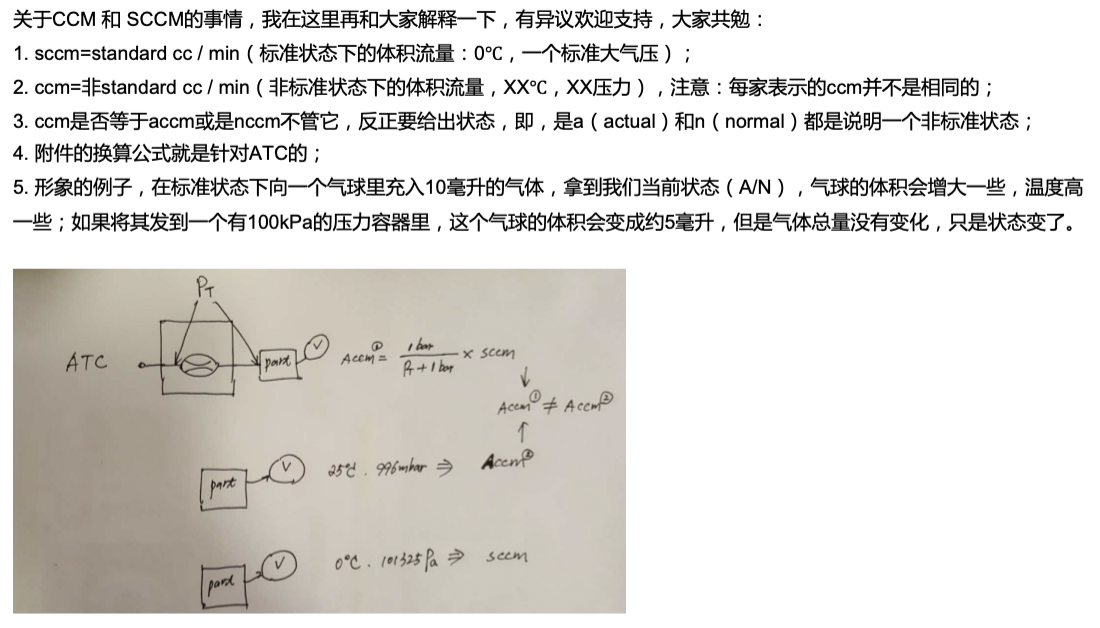 关于CCM 和 SCCM的事情，我在这里再和大家解释一下，有异议欢迎支持，大家共勉：
1. sccm=standard cc / min（标准状态下的体积流量：0℃，一个标准大气压）；
2. ccm=非standard cc / min（非标准状态下的体积流量，XX℃，XX压力），注意：每家表示的ccm并不是相同的；
3. ccm是否等于accm或是nccm不管它，反正要给出状态，即，是a（actual）和n（normal）都是说明一个非标准状态；
4. 附件的换算公式就是针对ATC的；
5. 形象的例子，在标准状态下向一个气球里充入10毫升的气体，拿到我们当前状态（A/N），气球的体积会增大一些，温度高
一些；如果将其发到一个有100kPa的压力容器里，这个气球的体积会变成约5毫升，但是气体总量没有变化，只是状态变了。
PT
ATC part V Accm① = 1 bar / PT + 1 bar × sccm
↓
Accm① ≠ Accm②
↑
part V 25℃. 996mbar ⇒ Accm②
part V 0℃. 101325Pa ⇒ sccm